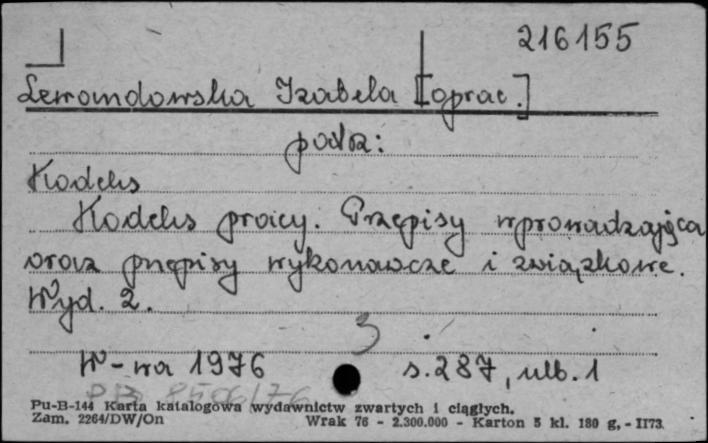 216155
Lewandowska Izabela [oprac.]
patrz:
Kodeks
Kodeks pracy. Przepisy wprowadzające
oraz przepisy wykonawcze i związkowe.
Wyd. 2.
3
W-wa 1976 s. 287, nlb. 1
Pu-B-144 Karta katalogowa wydawnictw zwartych i ciągłych.
Zam. 2264/DW/On Wrak 76 - 2.300.000 - Karton 5 kl. 180 g. - II73.